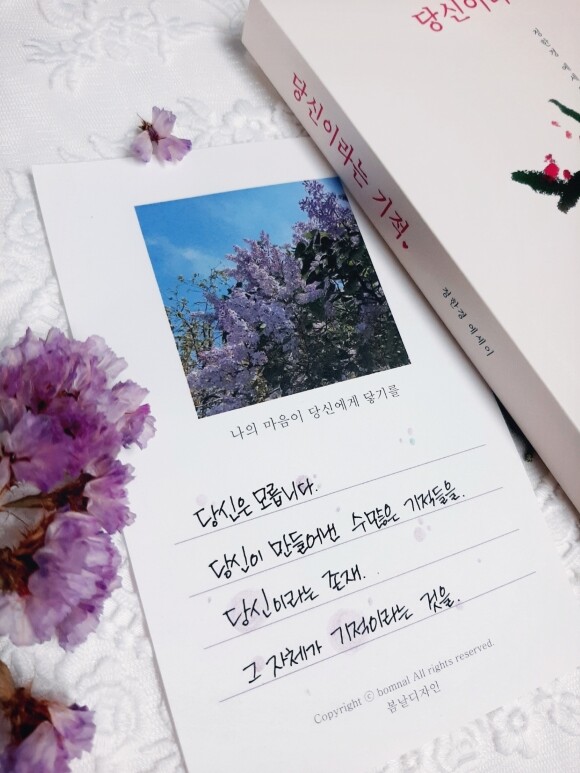 당신이라는 기적
정한경 에세이
나의 마음이 당신에게 닿기를
당신은 모릅니다.
당신이 만들어낸 수많은 기적들을.
당신이라는 존재.
그 자체가 기적이라는 것을.
Copyright ⓒ bomnal All rights reserved.
봄날디자인